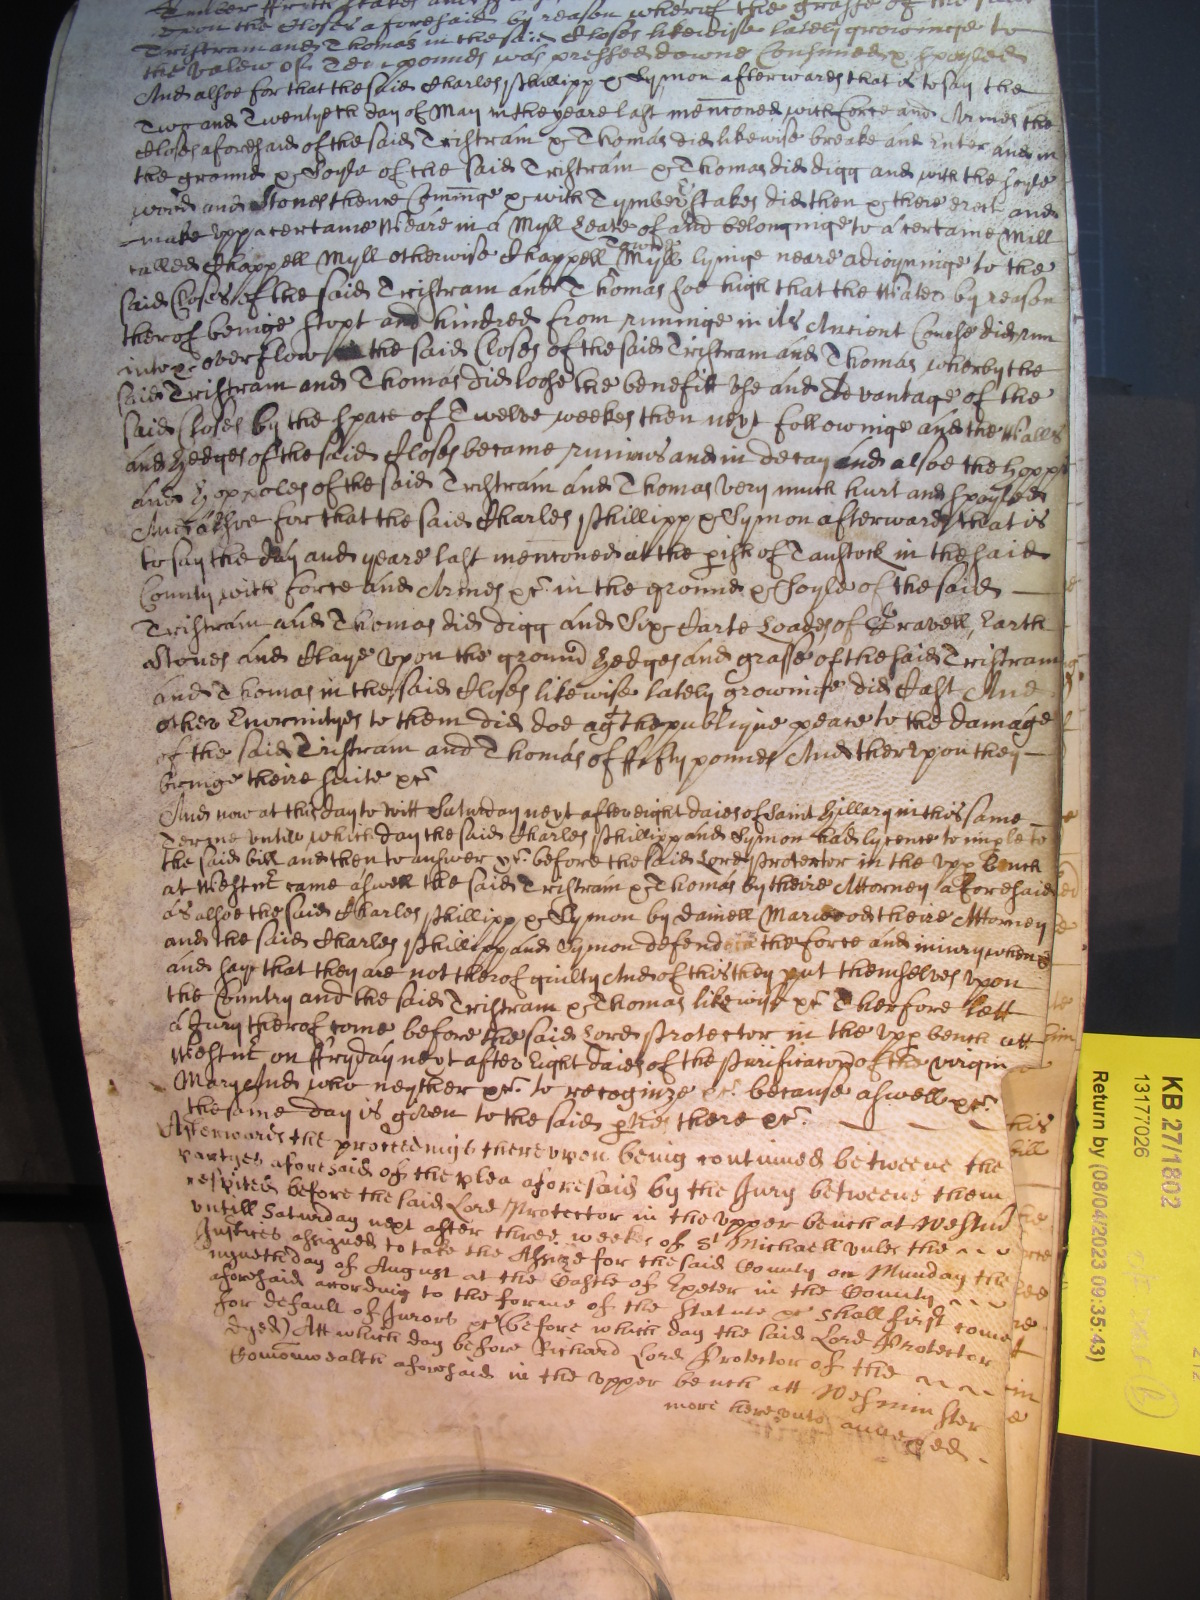 Timber ffrith Stakes and
vpon the Closes aforesaid by reason wherof the grasse of the said
Tristram and Thomas in the said Closes likewise lately growinge to
the valew of Ten pounds was pressed downe Consumed & spoyled
And alsoe for that the said Charles Phillipp & Symon afterwards that is to say the
Two and Twentyeth day of May in the yeare last menconed with force and Armes the
Closes aforesaid of the said Tristram & Thomas did likewise breake and Enter and in
the ground & Soyle of the said Tristram & Thomas did digg and with the soyle
wood and Stones thence Cominge & with Tymber Stakes did then & there erect and
make vpp a certaine Weare in a Myll Leate of and belonginge to a certaine Mill
called Chappell Myll otherwise Chappell Towne Myll lyinge neare adioyninge to the
said Closes of the said Tristram and Thomas soe high that the Water by reason
therof beinge stopt and hindred from runninge in its Ancient Course did run
into & overflow the said Closes of the said Tristram and Thomas wherby the
said Tristram and Thomas did loose the benefitt vse and Advantage of the
said Closes by the space of Twelve weekes then next followinge and the Walls
and Hedges of the said Closes became ruinous and in decay and alsoe the hopps
and Hoppoles of the said Tristram and Thomas very much hurt and spoyled
And alsoe for that the said Charles Phillipp & Symon afterwards that is
to say the day and yeare last menconed at the pish of Taustock in the said
County with force and Armes &c in the ground & Soyle of the said
Tristram and Thomas did digg and Six Carte Loades of Gravell, Earth
Stones and Claye vpon the ground Hedges and grasse of the said Tristram
and Thomas in the said Closes likewise lately growinge did Cast And
other Enormityes to them did doe agt the publique peace to the damage
of the said Tristram and Thomas of ffifty pounds And thervpon they
bringe theire suite &c
And now at this day to witt Saturday next after eight daies of Saint Hillary in this same
Terme vntill which day the said Charles Phillipp and Symon had lycence to imple to
the said bill and then to answer &c before the said Lord Protector in the vpp bench
at Westmr came aswell the said Tristram & Thomas by theire Attorney aforesaid
as alsoe the said Charles Phillipp & Symon by Daniell Marwood theire Attorney
and the said Charles Phillipp and Symon defend the force and iniury when &c
and say that they are not therof guilty And of this they put themselves vpon
the Country and the said Tristram & Thomas likewise &c Therfore lett
a Jury therof come before the said Lord Protector in the vpp bench att
Westmr on ffryday next after Eight daies of the Purificacon of the virgin
Mary And who neyther &c to recognize &c because aswell &c
the same day is given to the said pties there &c
Afterwards the proceedings therevpon being continued betweene the
partyes aforesaid of the plea aforesaid by the Jury betweene them
respited before the said Lord Protector in the vpper bench at Westmr
vntill Saturday next after three weekes of St Michaell vnles the
Justices assigned to take the Assize for the said County on Munday the
nynethday of August at the Castle of Exeter in the County
aforesaid according to the forme of the Statute &c shall first come
for default of Jurors &c (before which day the said Lord Protector
dyed) Att which day before Richard Lord Protector of the
Comonwealth aforesaid in the vpper bench att Westminster
more herevnto annexed.
KB 27/1802
13177026
Return by (08/04/2023 09:35:43)